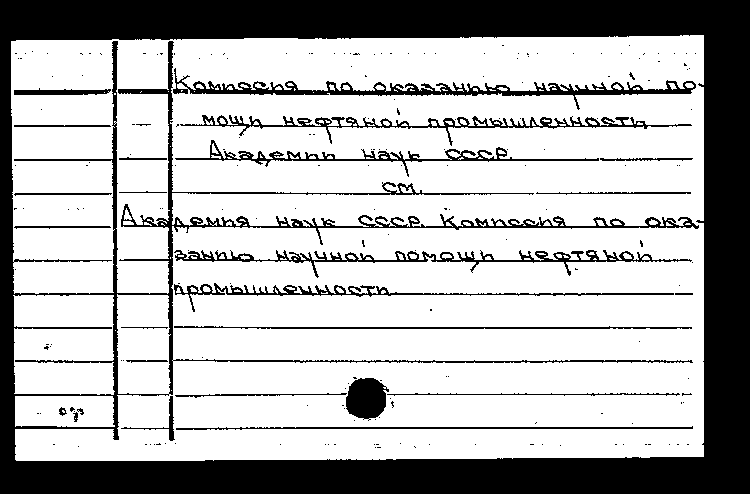 Комиссия по оказанию научной по-
мощи нефтяной промышленности
Академии наук СССР.
см.
Академия наук СССР. Комиссия по ока-
занию научной помощи нефтяной
промышленности